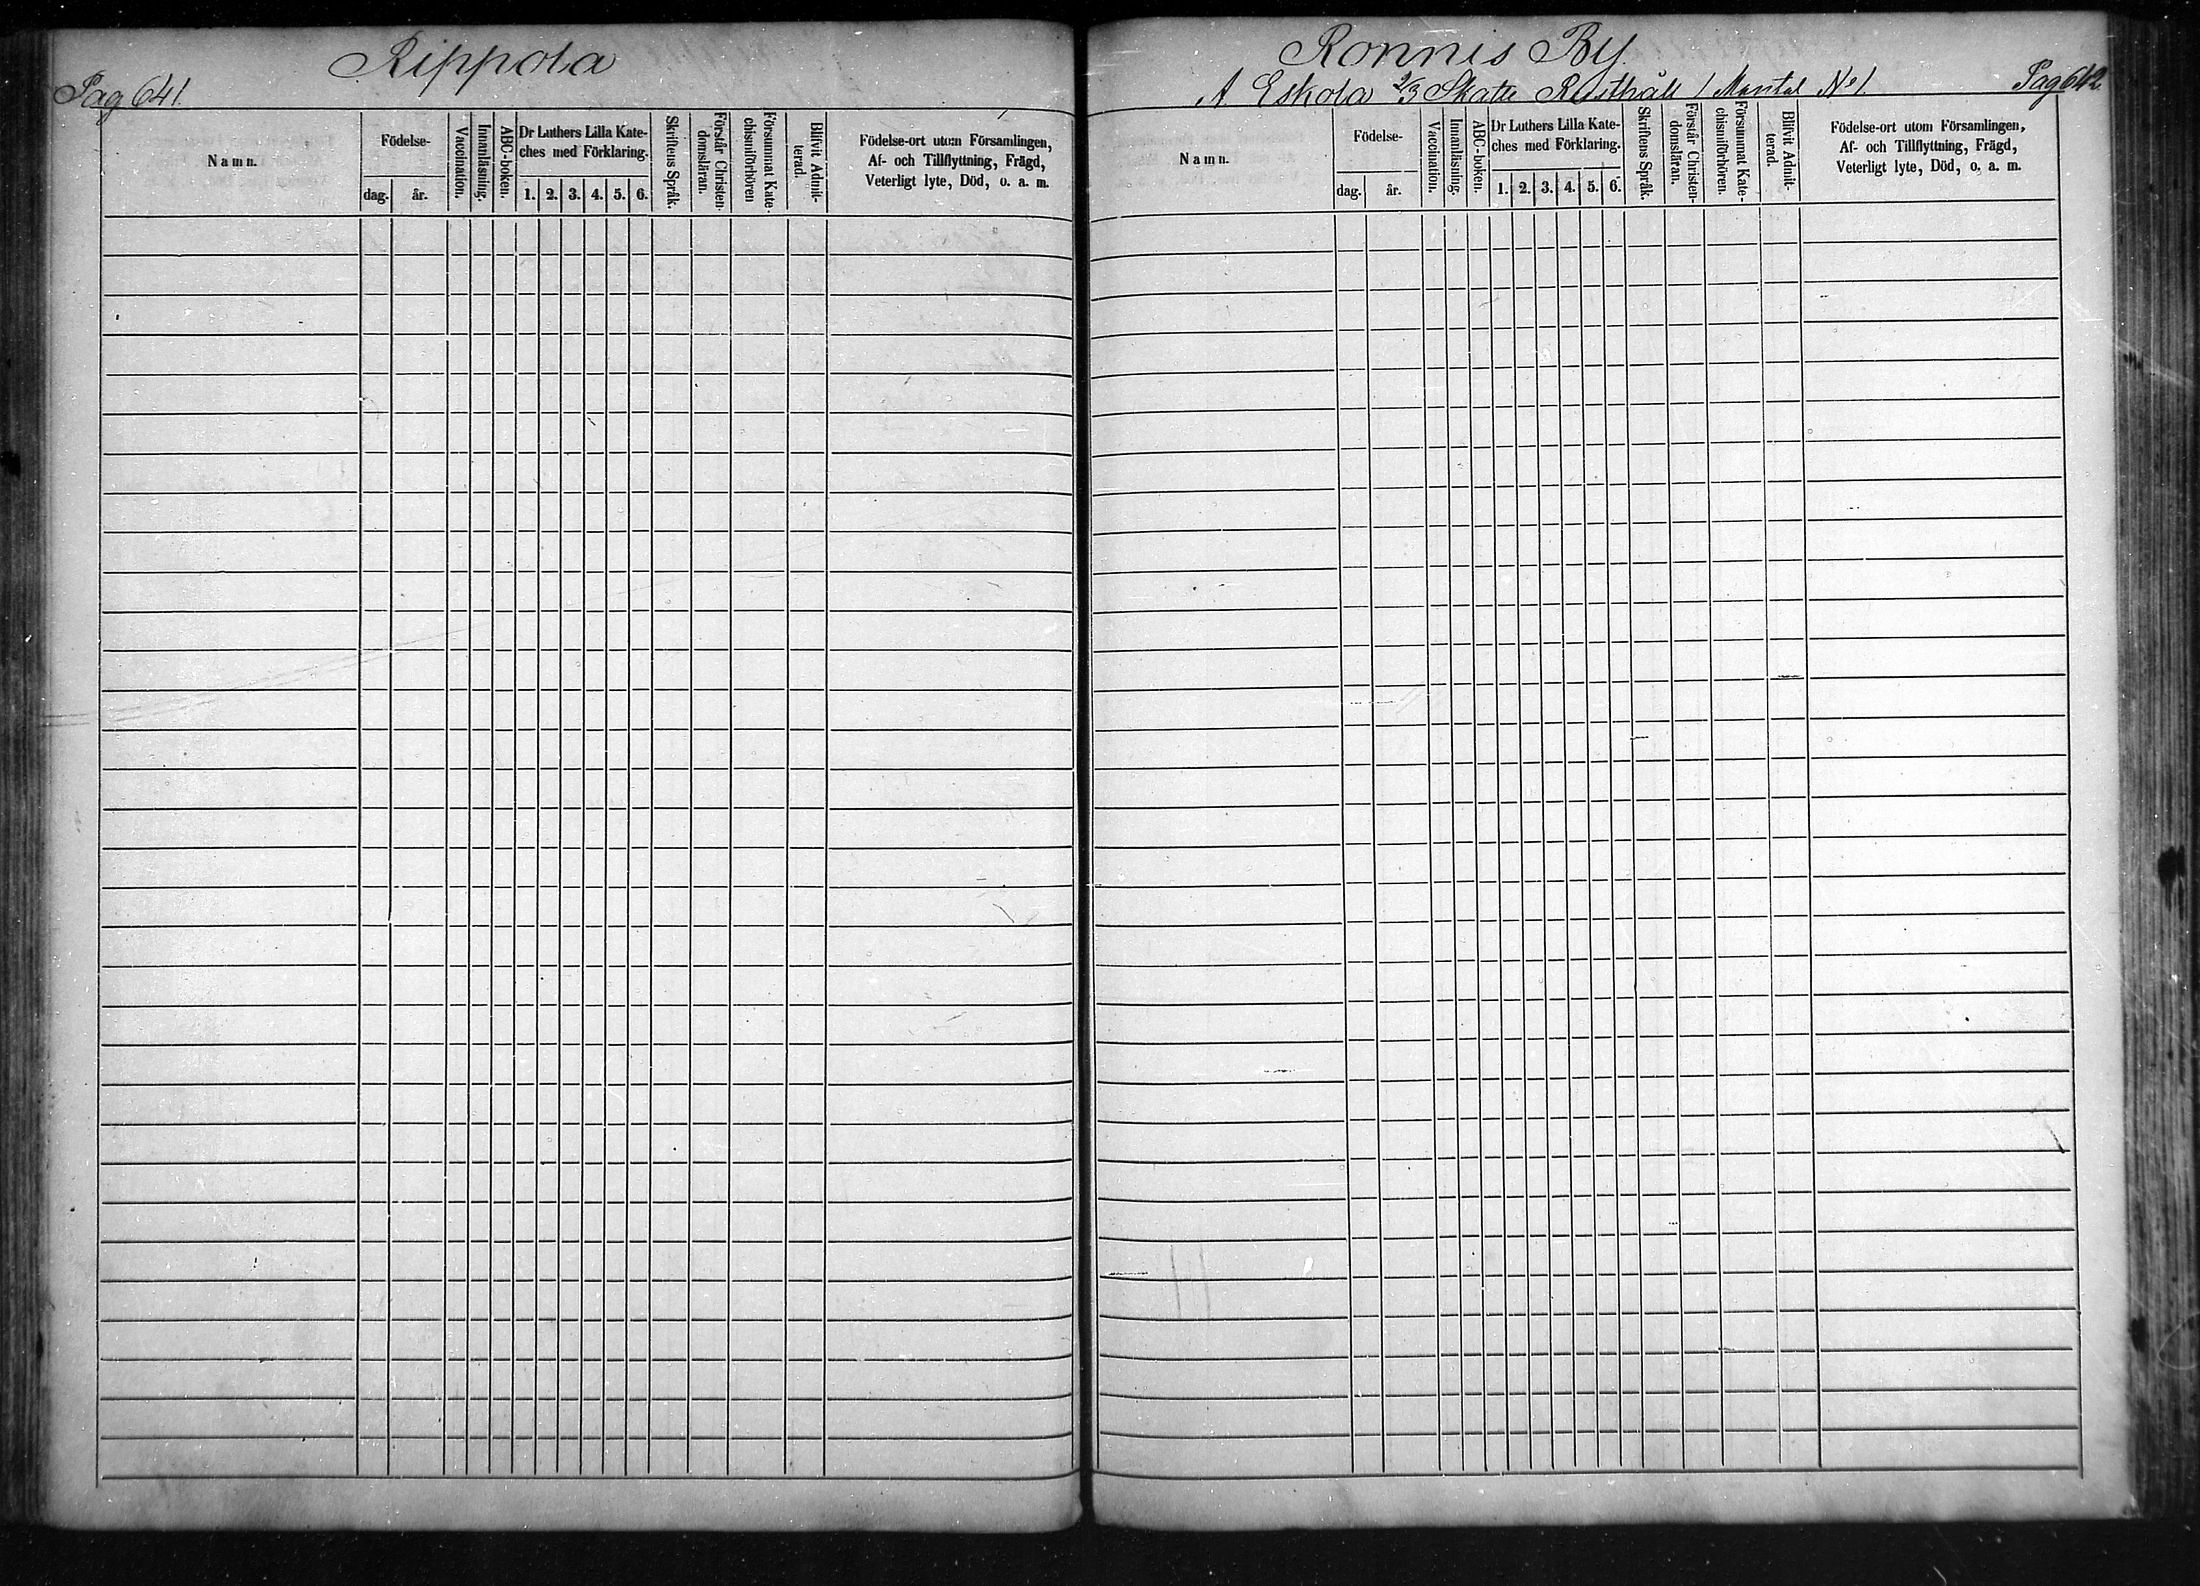 Rippola
Pag 641.
Namn.
Födelse-
dag.
år.
Vaccination.
Innanläsning.
ABC-boken.
Dr Luthers Lilla Kate-
ches med Förklaring.
1. 2. 3. 4. 5. 6.
Skriftens Språk.
Förstår Christen-
domsläran.
Försummat Kate-
chismiförhören
Blifvit Admit-
terad.
Födelse-ort utom Församlingen,
Af- och Tillflyttning, Frägd,
Veterligt lyte, Död, o. a. m.
Ronnis By.
A Eskola 2/3 Skatte Rusthåll 1 Mantal No 1.
Pag 642.
Namn.
Födelse-
dag.
år.
Vaccination.
Innanläsning.
ABC-boken.
Dr Luthers Lilla Kate-
ches med Förklaring.
1. 2. 3. 4. 5. 6.
Skriftens Språk.
Förstår Christen-
domsläran.
Försummat Kate-
chismiförhören.
Blifvit Admit-
terad.
Födelse-ort utom Församlingen,
Af- och Tillflyttning, Frägd,
Veterligt lyte, Död, o. a. m.